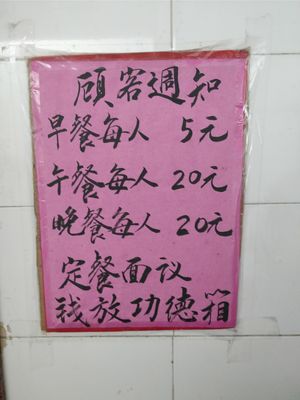 顾客週知
早餐每人 5元
午餐每人 20元
晚餐每人 20元
定餐面议
钱放功德箱